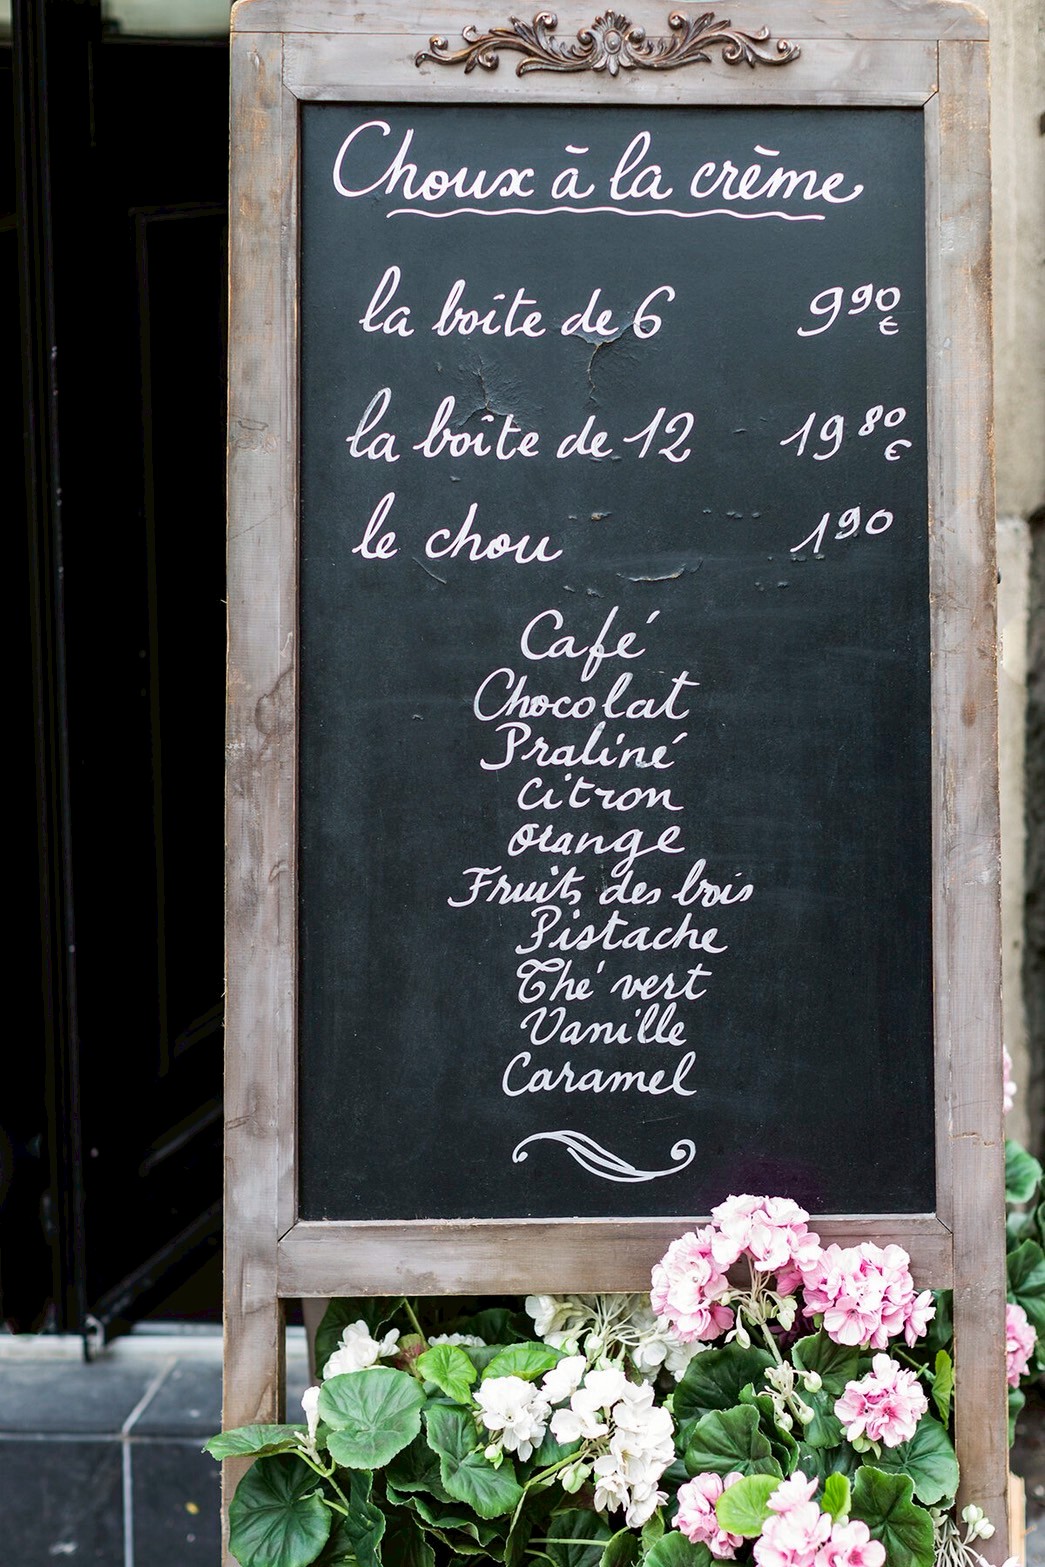 Choux à la crème
la boîte de 6 9 90 €
la boîte de 12 19 80 €
le chou 1 90
Café
Chocolat
Praliné
Citron
Orange
Fruits des bois
Pistache
Thé vert
Vanille
Caramel